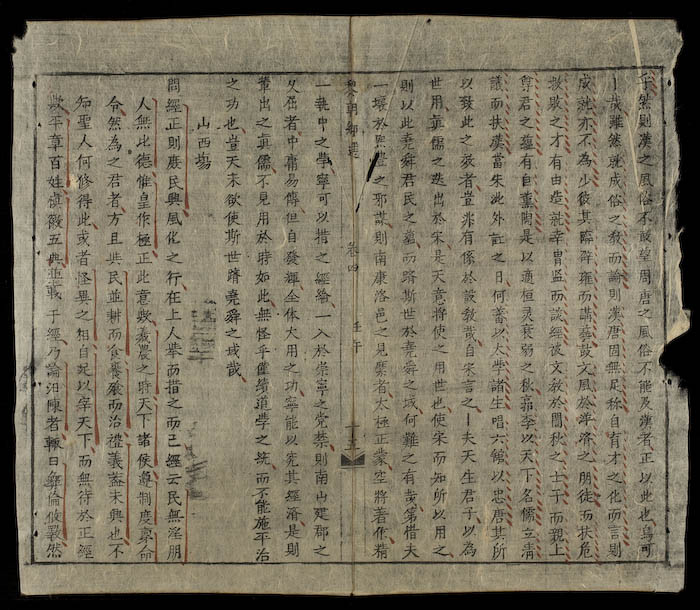 乎然則漢之風俗不敢望周唐之風俗不能及漢者正以此也烏可
雖然就成俗之教而論則漢唐固無足称自育才之化而言則
成就亦不為少彼其臨辟雍而講藝鼓文風於濟之朋徒而扶危
救敗之才有由造就幸冑監而談經文教於闇秋之士子而親上
尊君之蘊有自薰陶是以適桓灵衰弱之秋郭李以天下名儒立清
議而扶漢當朱泚外訌之日何蕃以太學諸生唱六館以忠唐其所
以致此之效者豈非有係於設教哉自宋言之一夫天生君子以為
世用真儒之迭出於宋是天意將使之用世也使宋而知所以用之
則以此堯舜君民之蘊而躋斯世於堯舜之域何難之有哉第惜夫
一壞於熙豊之邪謀則南康洛邑之見者太極正蒙空將著作精
黎朝鄉選 卷四 壬午 十五
一執中之學寧可以措之經綸一入於崇寧之党禁則南山建郡之
久居者中庸易傳但自發揮全体大用之功寧能以究其經濟是則
輩出之真儒不見用於時如此無怪乎僅續道學之統而不能施平治
之功也豈天未欲使斯世躋堯舜之域哉
山西塲
問經正則庶民興風化之行在上人舉而措之而已經云民無淫朋
人無比德惟皇作極正此意歟羲農之時天下諸侯遵制度稟命
令然為之君者方且與民並耕而食饔飧而治禮義盖未興也不
知聖人何修得此或者怪異之相自足以宰天下而無待於正經
歟平章百姓慎徽五典並載于經乃論汨陳者輒曰彝倫攸斁然